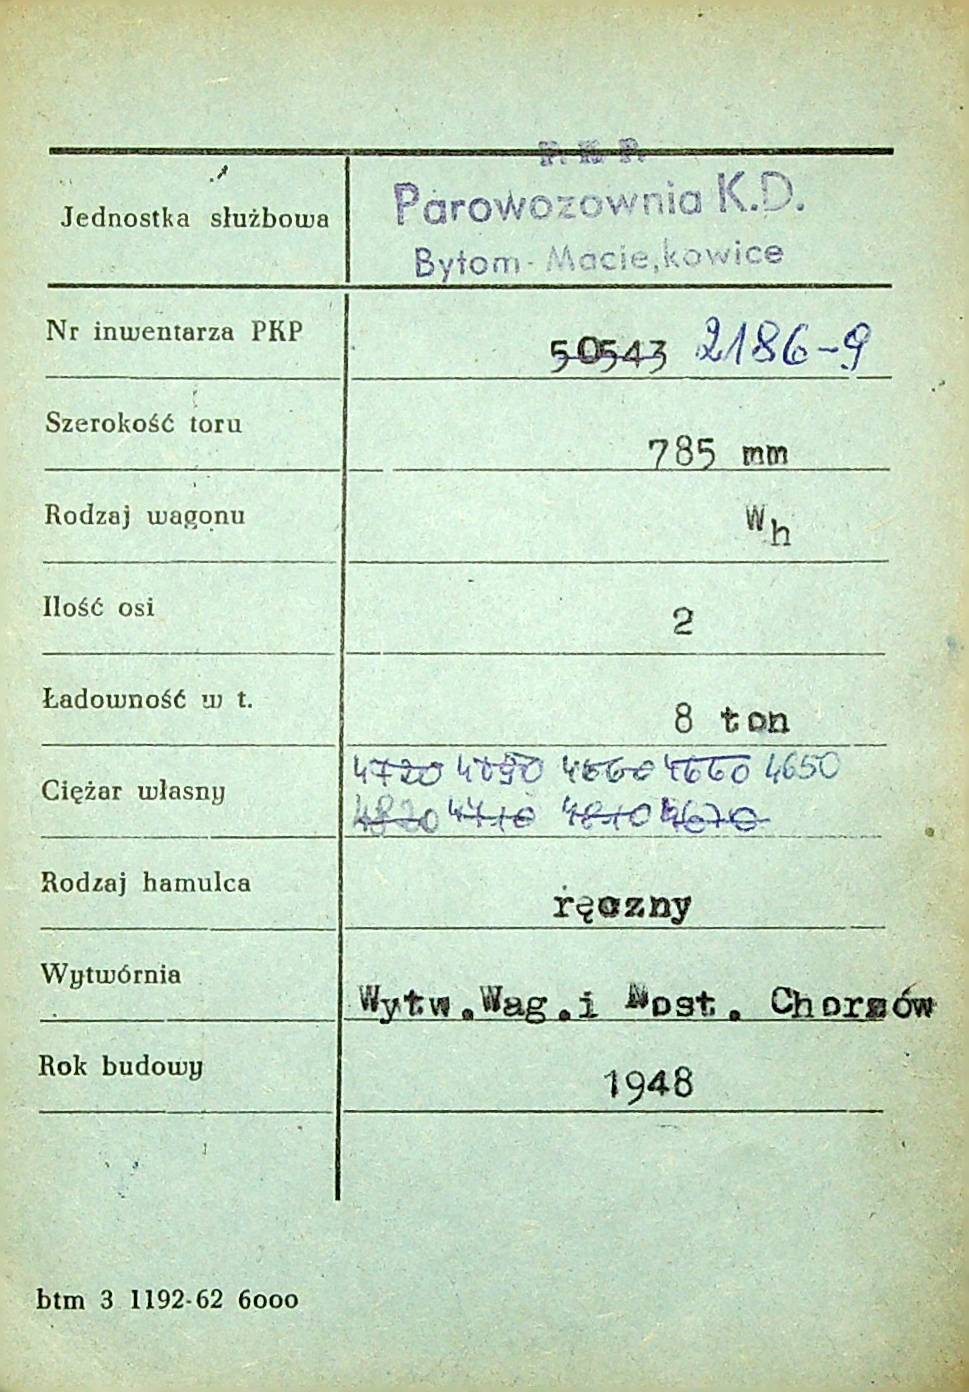 P. K. P.
Jednostka służbowa Parowozownia K.D.
Bytom-Macie,kowice
Nr inwentarza PKP 50543 2186-9
Szerokość toru 785 mm
Rodzaj wagonu Wh
Ilość osi 2
Ładowność w t. 8 ton
4720 4690 4660 4660 4650
Ciężar własny 4820 4710 4810 4670
Rodzaj hamulca ręczny
Wytwórnia Wytw.Wag.i Most. Chorzów
Rok budowy 1948
btm 3 1192-62 6000